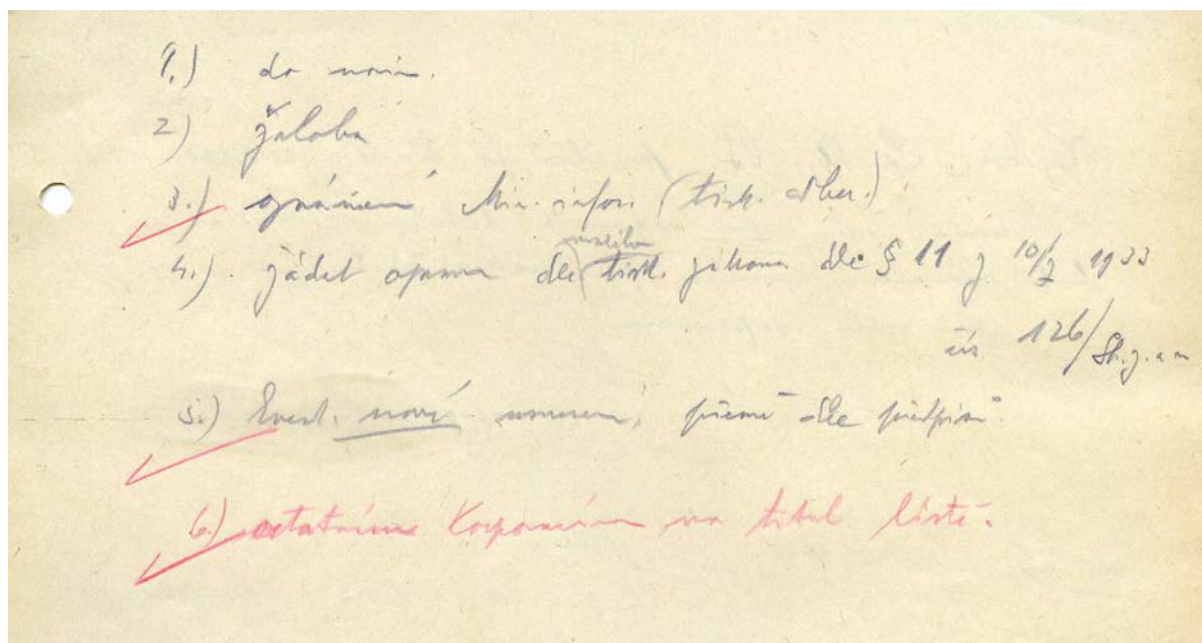 1.) do novin.
2) žaloba
3.) oznámení Min. infor. (tisk. odbor.)
4.). žádat opravu dle tisk. zákona dle § 11 z 10/7 1933
čís 126/Sb.z. a n
5.) Event. nové usnesení, přesně dle předpisů.
6.) ostatním korporacím na titul listě.